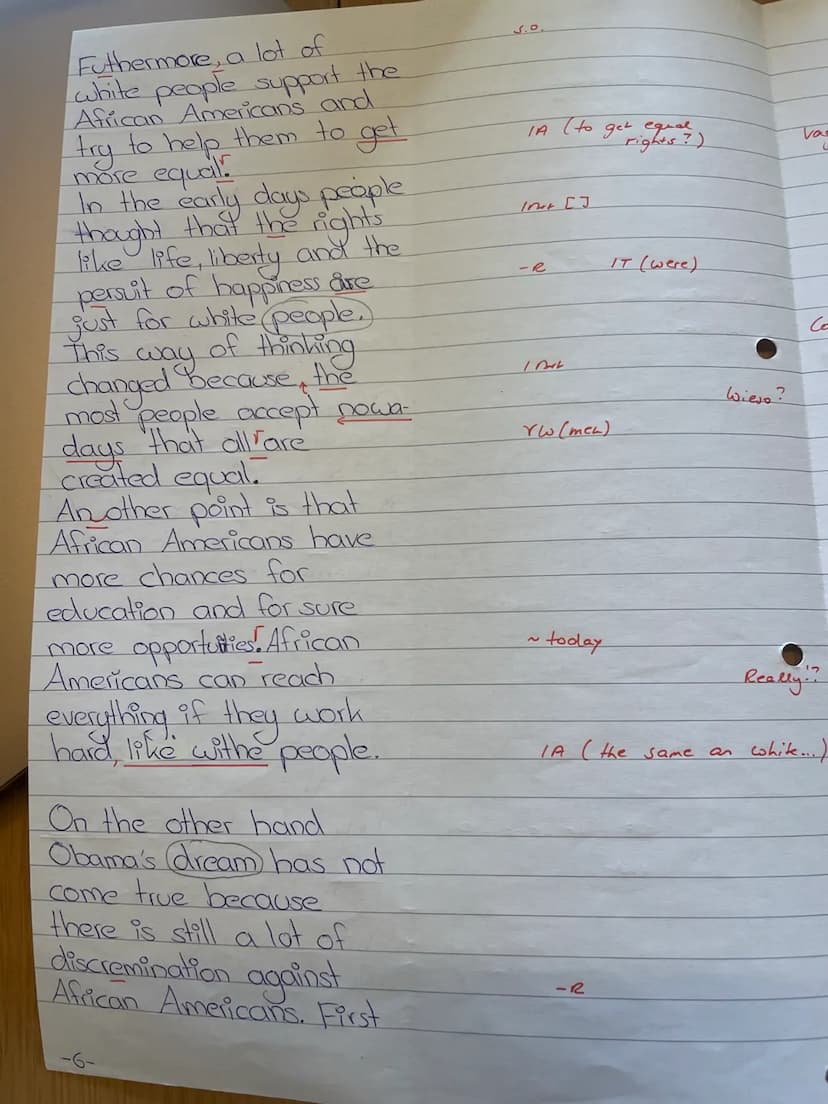 Futhermore, a lot of s.o.
white people support the
African Americans and
try to help them to get 1A (to get equal
more equal. rights?)
In the early days people
thought that the rights
like life, liberty and the -R IT (were)
persuit of happiness are
just for white people.
This way of thinking
changed because, the
most people accept nowa- Wieso?
days that all are YW (men)
created equal.
Another point is that
African Americans have
more chances for
education and for sure
more opportuities. African ~ today
Americans can reach Really!?
everything if they work
hard, like withe people. 1A (the same as white...)
On the other hand
Obama's dream has not
come true because
there is still a lot of
discremination against
African Americans. First -R
-6-